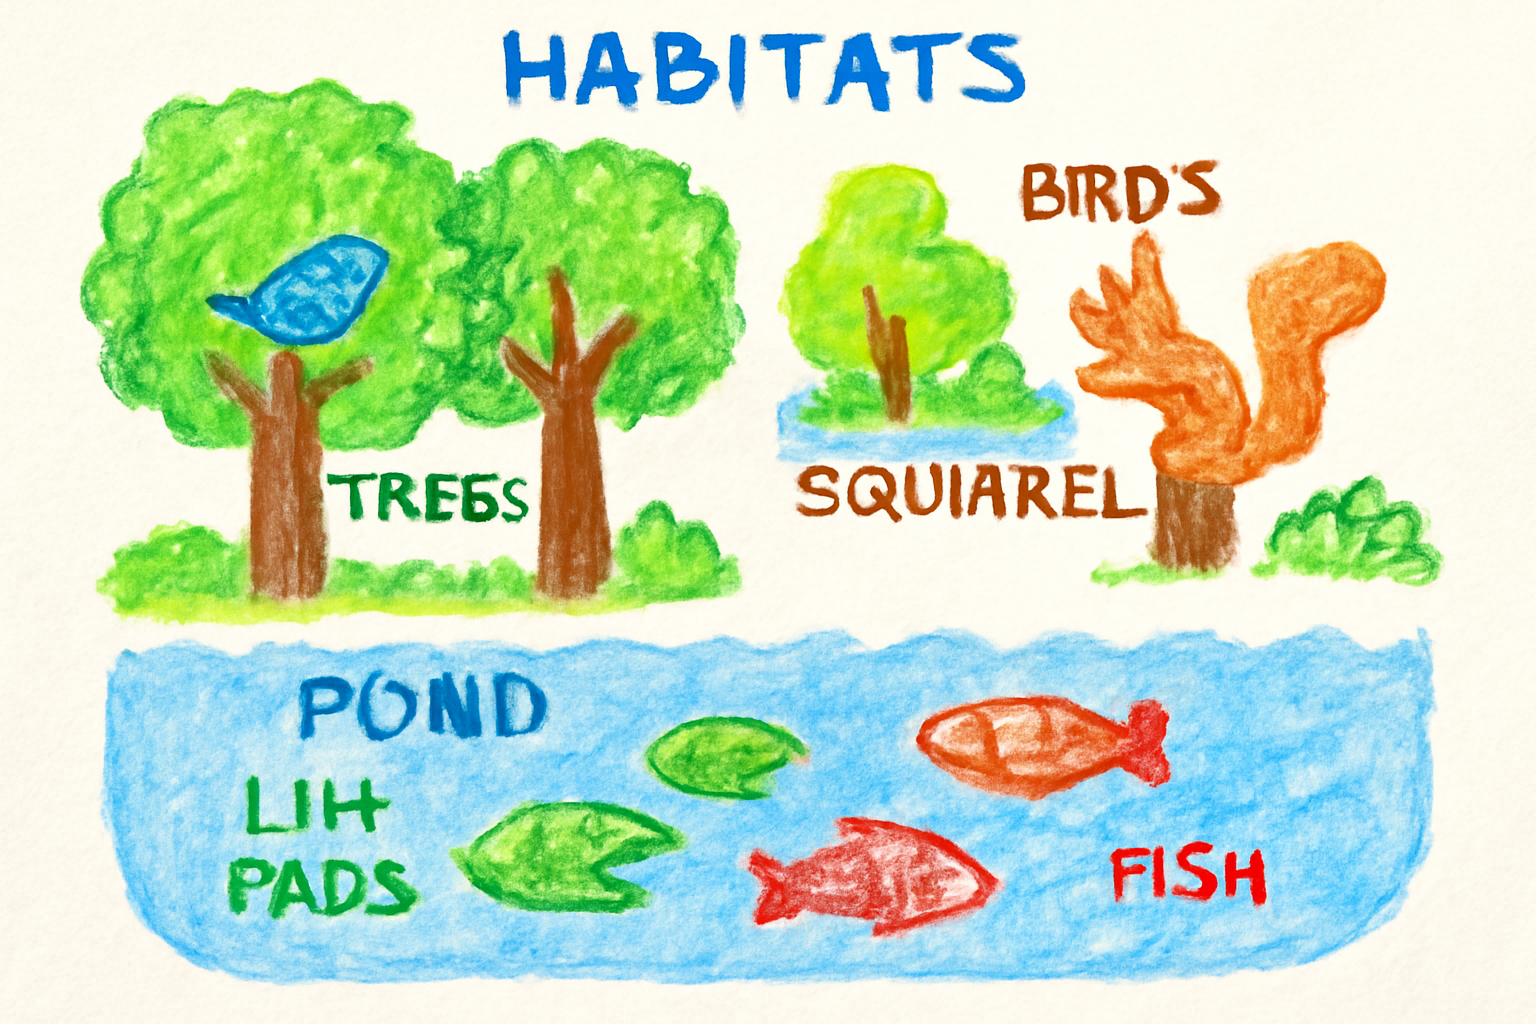 HABITATS
BIRD'S
TREES
SQUIAREL
POND
LIH
PADS
FISH